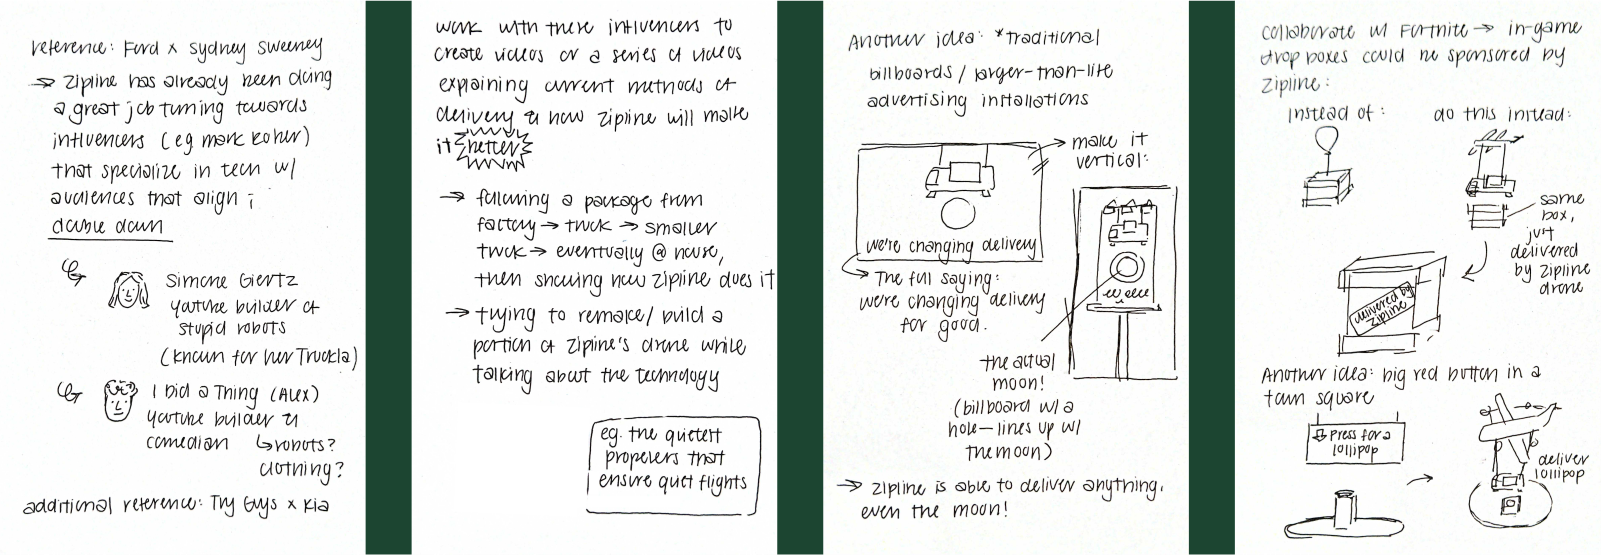 reference: Ford x Sydney Sweeney
→ Zipline has already been doing
a great job turning towards
influencers (eg mark Rober)
that specialize in tech w/
audiences that align;
double down
Simone Giertz
youtube builder of
stupid robots
(known for her Truckla)
I Did a Thing (Alex)
youtube builder &
comedian ↳ robots?
clothing?
additional reference: Try Guys x Kia
work with these influencers to
create videos or a series of videos
explaining current methods of
delivery & how zipline will make
it better
→ following a package from
factory → truck → smaller
truck → eventually @ house,
then showing how zipline does it
→ trying to remake/build a
portion of zipline's drone while
talking about the technology
eg. the quietest
propellers that
ensure quiet flights
Another idea: *traditional
billboards / larger-than-life
advertising installations
→ make it
vertical:
we're changing delivery
→ The full saying:
we're changing delivery
for good.
the actual
moon!
(billboard w/ a
hole—lines up w/
the moon)
→ zipline is able to deliver anything,
even the moon!
collaborate w/ Fortnite → in-game
drop boxes could be sponsored by
zipline:
instead of:
do this instead:
same
box,
just
delivered
by zipline
drone
delivered by
zipline
Another idea: big red button in a
town square
Press for a
lollipop
deliver
lollipop